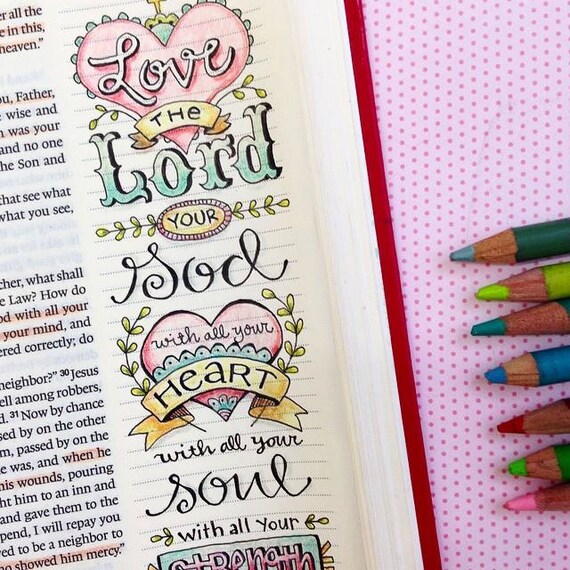 er all the
e in this,
heaven.”
ou, Father,
e wise and
n was your
and no one
he Son and
that see what
what you see,
cher, what shall
e Law? How do
od with all your
your mind, and
ered correctly; do
neighbor?” 30 Jesus
ell among robbers,
d. 31 Now by chance
sed by on the other
m, passed by on the
e was, and when he
his wounds, pouring
ght him to an inn and
and gave them to the
pend, I will repay you
ved to be a neighbor to
o showed him mercy.”
Love
THE
Lord
YOUR
God
with all your
HEART
with all your
soul
with all your
STRENGTH